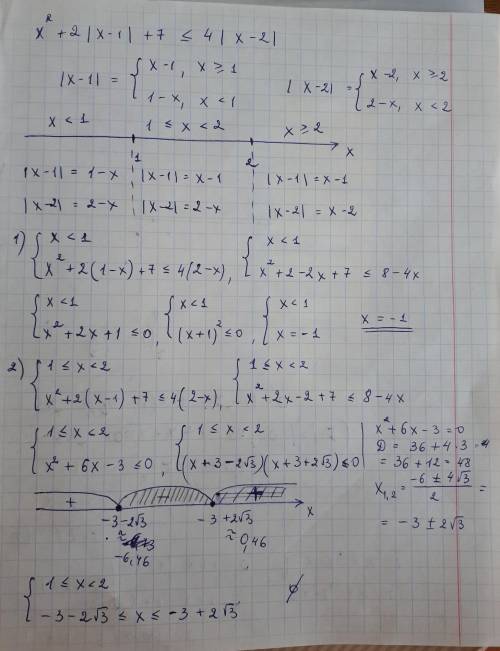 x² + 2|x-1| + 7 ≤ 4|x-2|
|x-1| = { x-1, x ≥ 1
1-x, x < 1
|x-2| = { x-2, x ≥ 2
2-x, x < 2
x < 1 1 ≤ x < 2 x ≥ 2
1 2 x
|x-1| = 1-x |x-1| = x-1 |x-1| = x-1
|x-2| = 2-x |x-2| = 2-x |x-2| = x-2
1) { x < 1
x² + 2(1-x) + 7 ≤ 4(2-x),
{ x < 1
x² + 2 - 2x + 7 ≤ 8 - 4x
{ x < 1
x² + 2x + 1 ≤ 0,
{ x < 1
(x+1)² ≤ 0,
{ x < 1
x = -1
x = -1
2) { 1 ≤ x < 2
x² + 2(x-1) + 7 ≤ 4(2-x),
{ 1 ≤ x < 2
x² + 2x - 2 + 7 ≤ 8 - 4x
{ 1 ≤ x < 2
x² + 6x - 3 ≤ 0,
{ 1 ≤ x < 2
(x + 3 - 2√3)(x + 3 + 2√3) ≤ 0
x² + 6x - 3 = 0
D = 36 + 4·3 =
= 36 + 12 = 48
x₁,₂ = (-6 ± 4√3)/2 =
= -3 ± 2√3
+ − + x
-3-2√3 -3+2√3
≈ ≈ 0,46
-6,46
{ 1 ≤ x < 2
-3-2√3 ≤ x ≤ -3+2√3
∅